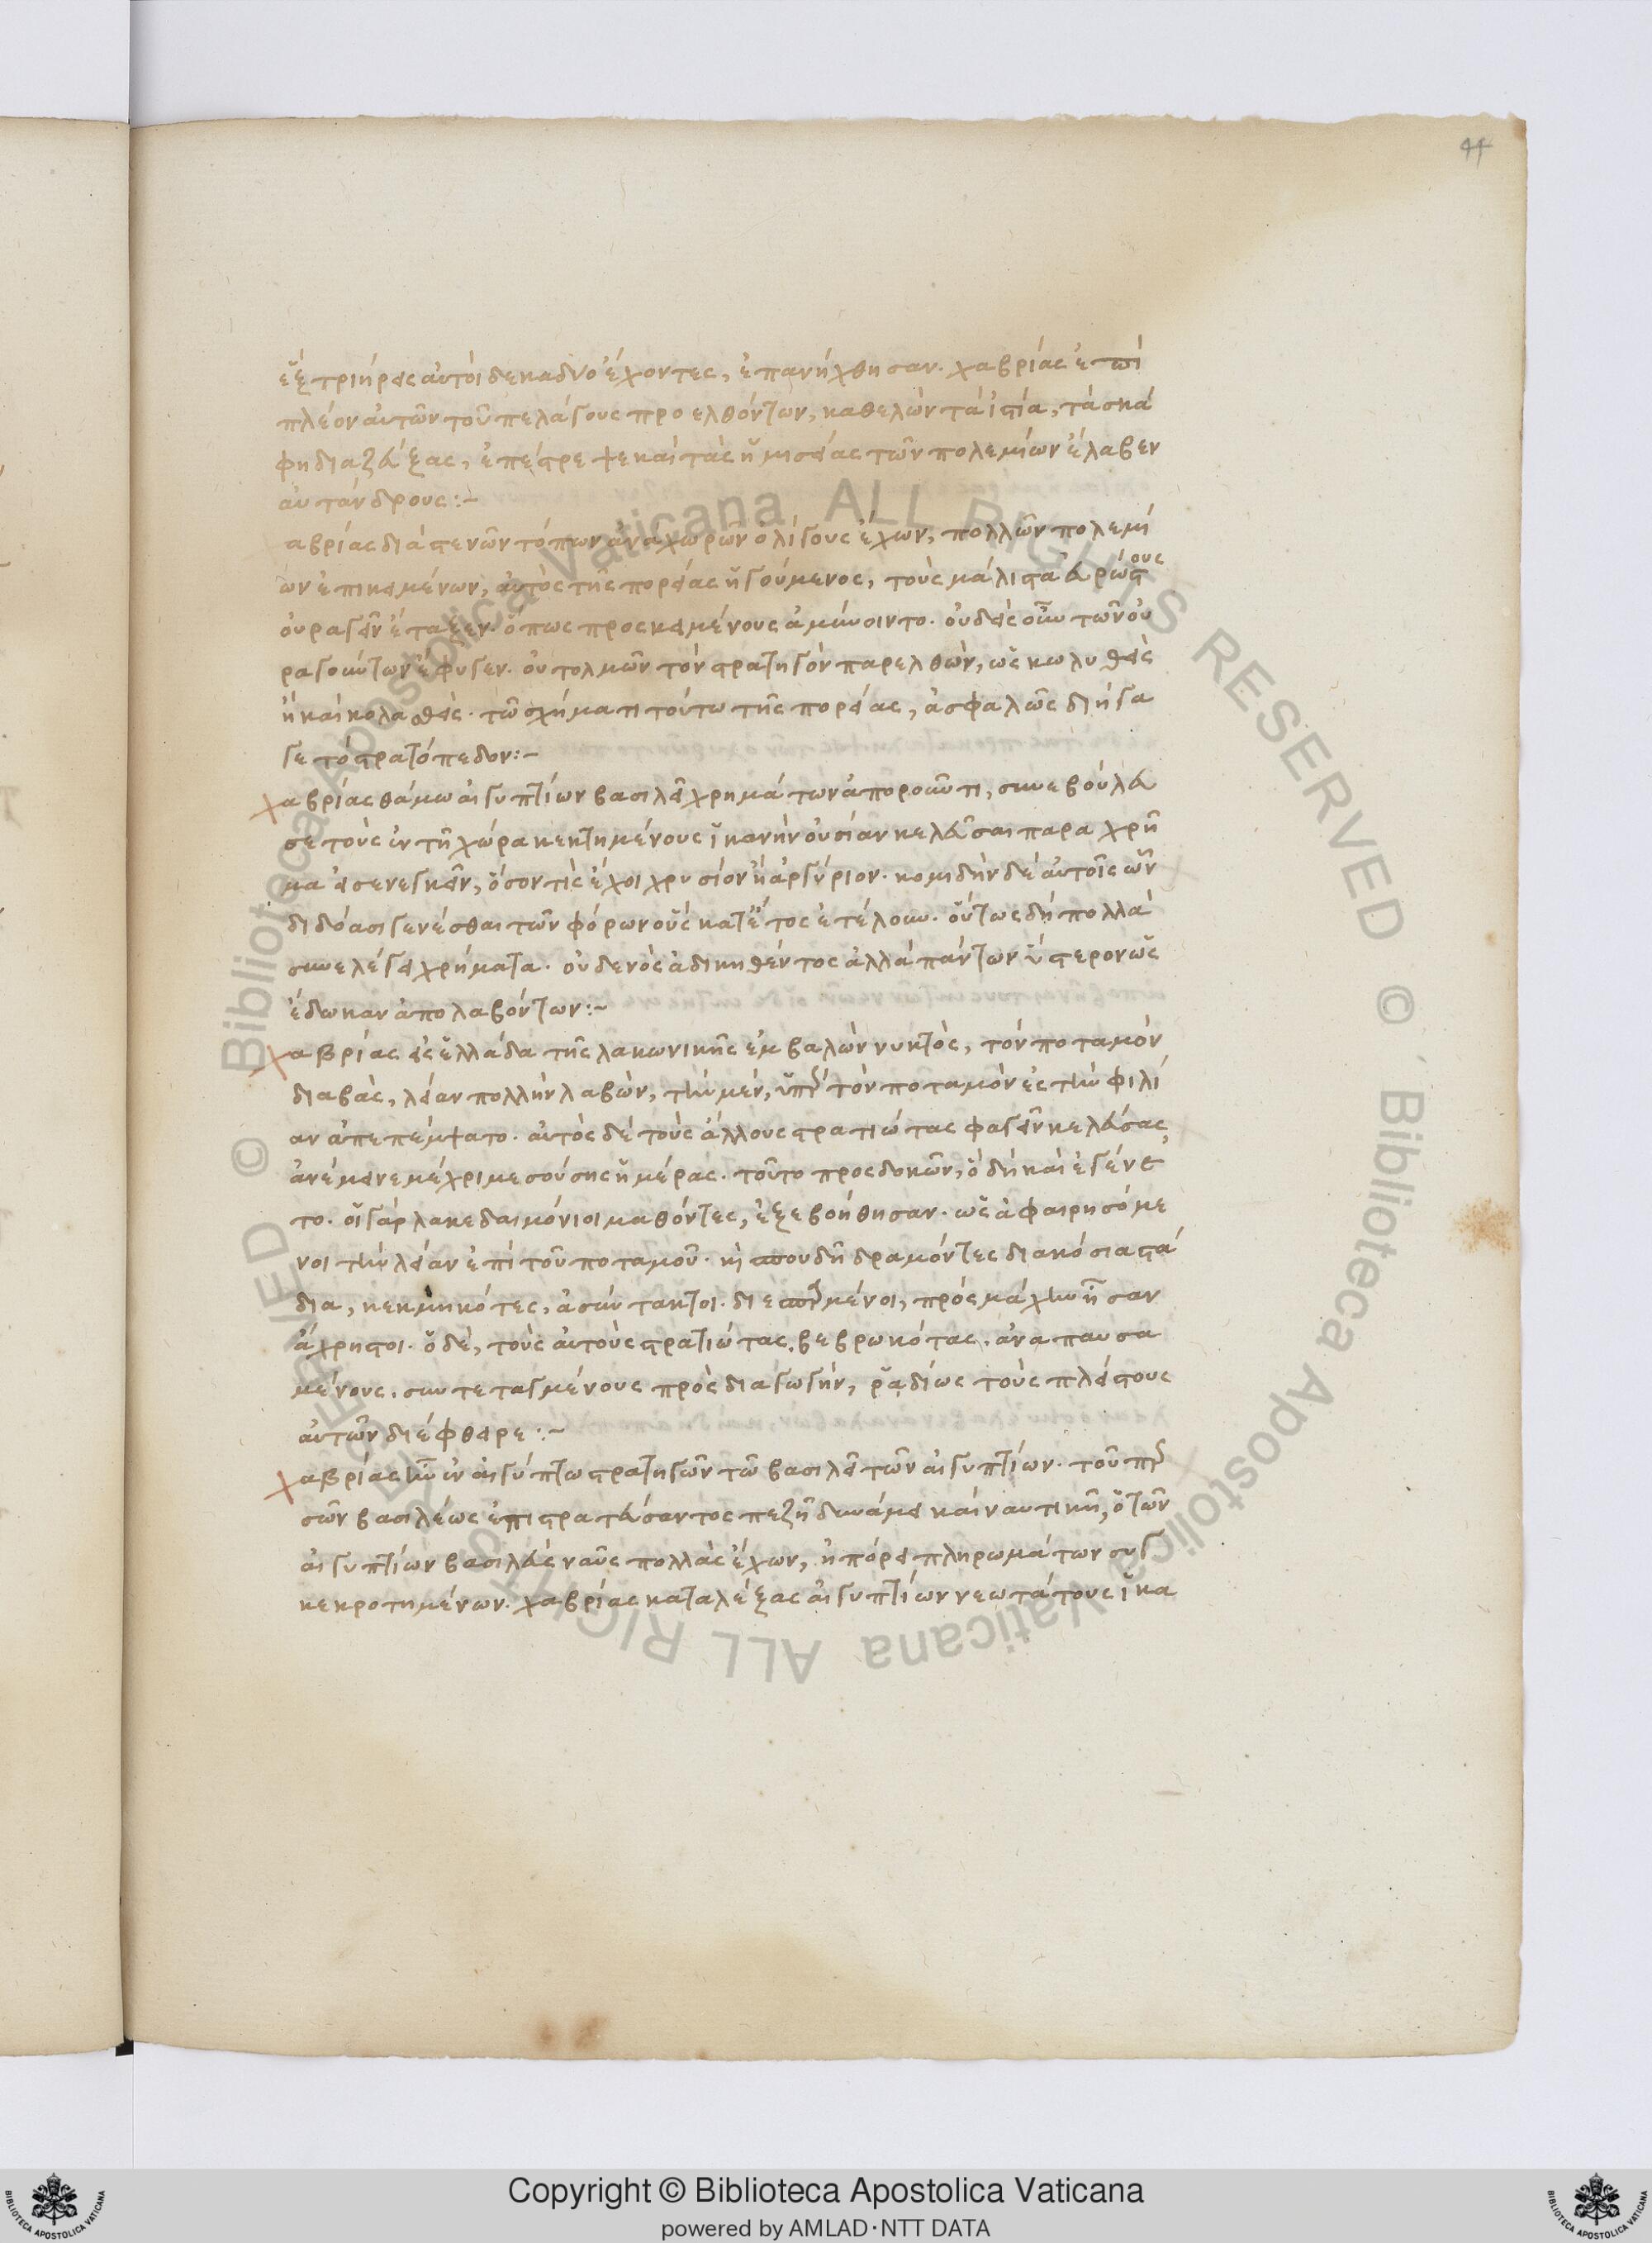 44
ἓξ τριήρεις αὐτοὶ δεκαδύο ἔχοντες, ἐπανήχθησαν. χαβρίας ἐπὶ
πλέον αὐτῶν τοῦ πελάγους προελθόντων, καθελὼν τὰ ἱστία, τὰ σκά
φη διαζεύξας, ἐπέστρεψε καὶ τὰς ἡμισείας τῶν πολεμίων ἔλαβεν
αὐτάνδρους:~
αβρίας διὰ στενῶν τόπων ἀναχωρῶν ὀλίγους ἔχων, πολλῶν πολεμί
ων ἐπικειμένων, αὐτὸς τῆς πορείας ἡγούμενος, τοὺς μάλιστα εὐρώστους
οὐραγεῖν ἔταξεν. ὅπως προσκειμένους ἀμύνοιντο. οὐδεὶς οὖν τῶν οὐ
ραγούντων ἔφυγεν. οὐ τολμῶν τὸν στρατηγὸν παρελθὼν, ὡς κωλυθεὶς
ἢ καὶ κολασθεὶς. τῶ σχήματι τούτω τῆς πορείας, ἀσφαλῶς διήγα
γε τὸ στρατόπεδον:~
χαβρίας θάμω αἰγυπτίων βασιλεῖ χρημάτων ἀποροῦντι, συνεβούλευ
σε τοὺς ἐν τῆ χώρα κεκτημένους ἱκανὴν οὐσίαν κελεῦσαι παραχρῆ
μα εἰσενεγκεῖν, ὅσον τὶς ἔχοι χρυσίον ἢ ἀργύριον. κομιδὴν δὲ αὐτοῖς ὧν
διδόασι γενέσθαι τῶν φόρων οὓς κατ' ἔτος ἐτέλουν. οὕτως δὴ πολλὰ
συνελέγει χρήματα. οὐδενὸς ἀδικηθέντος ἀλλὰ πάντων ὕστερον ὡς
ἔδωκαν ἀπολαβόντων:~
χαβρίας εἰς ἑλλάδα τῆς λακωνικῆς ἐμβαλὼν νυκτὸς, τὸν ποταμὸν
διαβὰς, λείαν πολλὴν λαβὼν, τὴν μὲν, ὑπὲρ τὸν ποταμὸν ἐς τὴν φιλί
αν ἀπεπέμψατο. αὐτὸς δὲ τοὺς ἄλλους στρατιώτας φαγεῖν κελεύσας,
ἀνέμεινε μέχρι μεσούσης ἡμέρας. τοῦτο προσδοκῶν, ὃ δὴ καὶ ἐγένε
το. οἱ γὰρ λακεδαιμόνιοι μαθόντες, ἐξεβοήθησαν. ὡς ἀφαιρησόμε
νοι τὴν λείαν ἐπὶ τοῦ ποταμοῦ. καὶ σπουδῆ δραμόντες διακόσια στά
δια, κεκμηκότες, ἀσύντακτοι. διεσπαρμένοι, πρὸς μάχην ἦσαν
ἄχρηστοι. ὁ δὲ, τοὺς αὐτοὺς στρατιώτας. βεβρωκότας. ἀναπαυσα
μένους. συντεταγμένους πρὸς διαγωγὴν, ῥαδίως τοὺς πλείστους
αὐτῶν διέφθειρε:~
χαβρίας ἦν ἐν αἰγύπτω στρατηγῶν τῶ βασιλεῖ τῶν αἰγυπτίων. τοῦ περ
σῶν βασιλέως ἐπιστρατεύσαντος πεζῆ δυνάμει καὶ ναυτικῆ, ὁ τῶν
αἰγυπτίων βασιλεὺς ναῦς πολλὰς ἔχων, ἠπόρει πληρωμάτων συγ
κεκροτημένων. χαβρίας καταλέξας αἰγυπτίων νεωτάτους ἱκα
Copyright © Biblioteca Apostolica Vaticana
powered by AMLAD·NTT DATA
BIBLIOTECA APOSTOLICA VATICANA
BIBLIOTECA APOSTOLICA VATICANA
© Biblioteca Apostolica Vaticana ALL RIGHTS RESERVED © Biblioteca Apostolica Vaticana ALL RIGHTS RESERVED